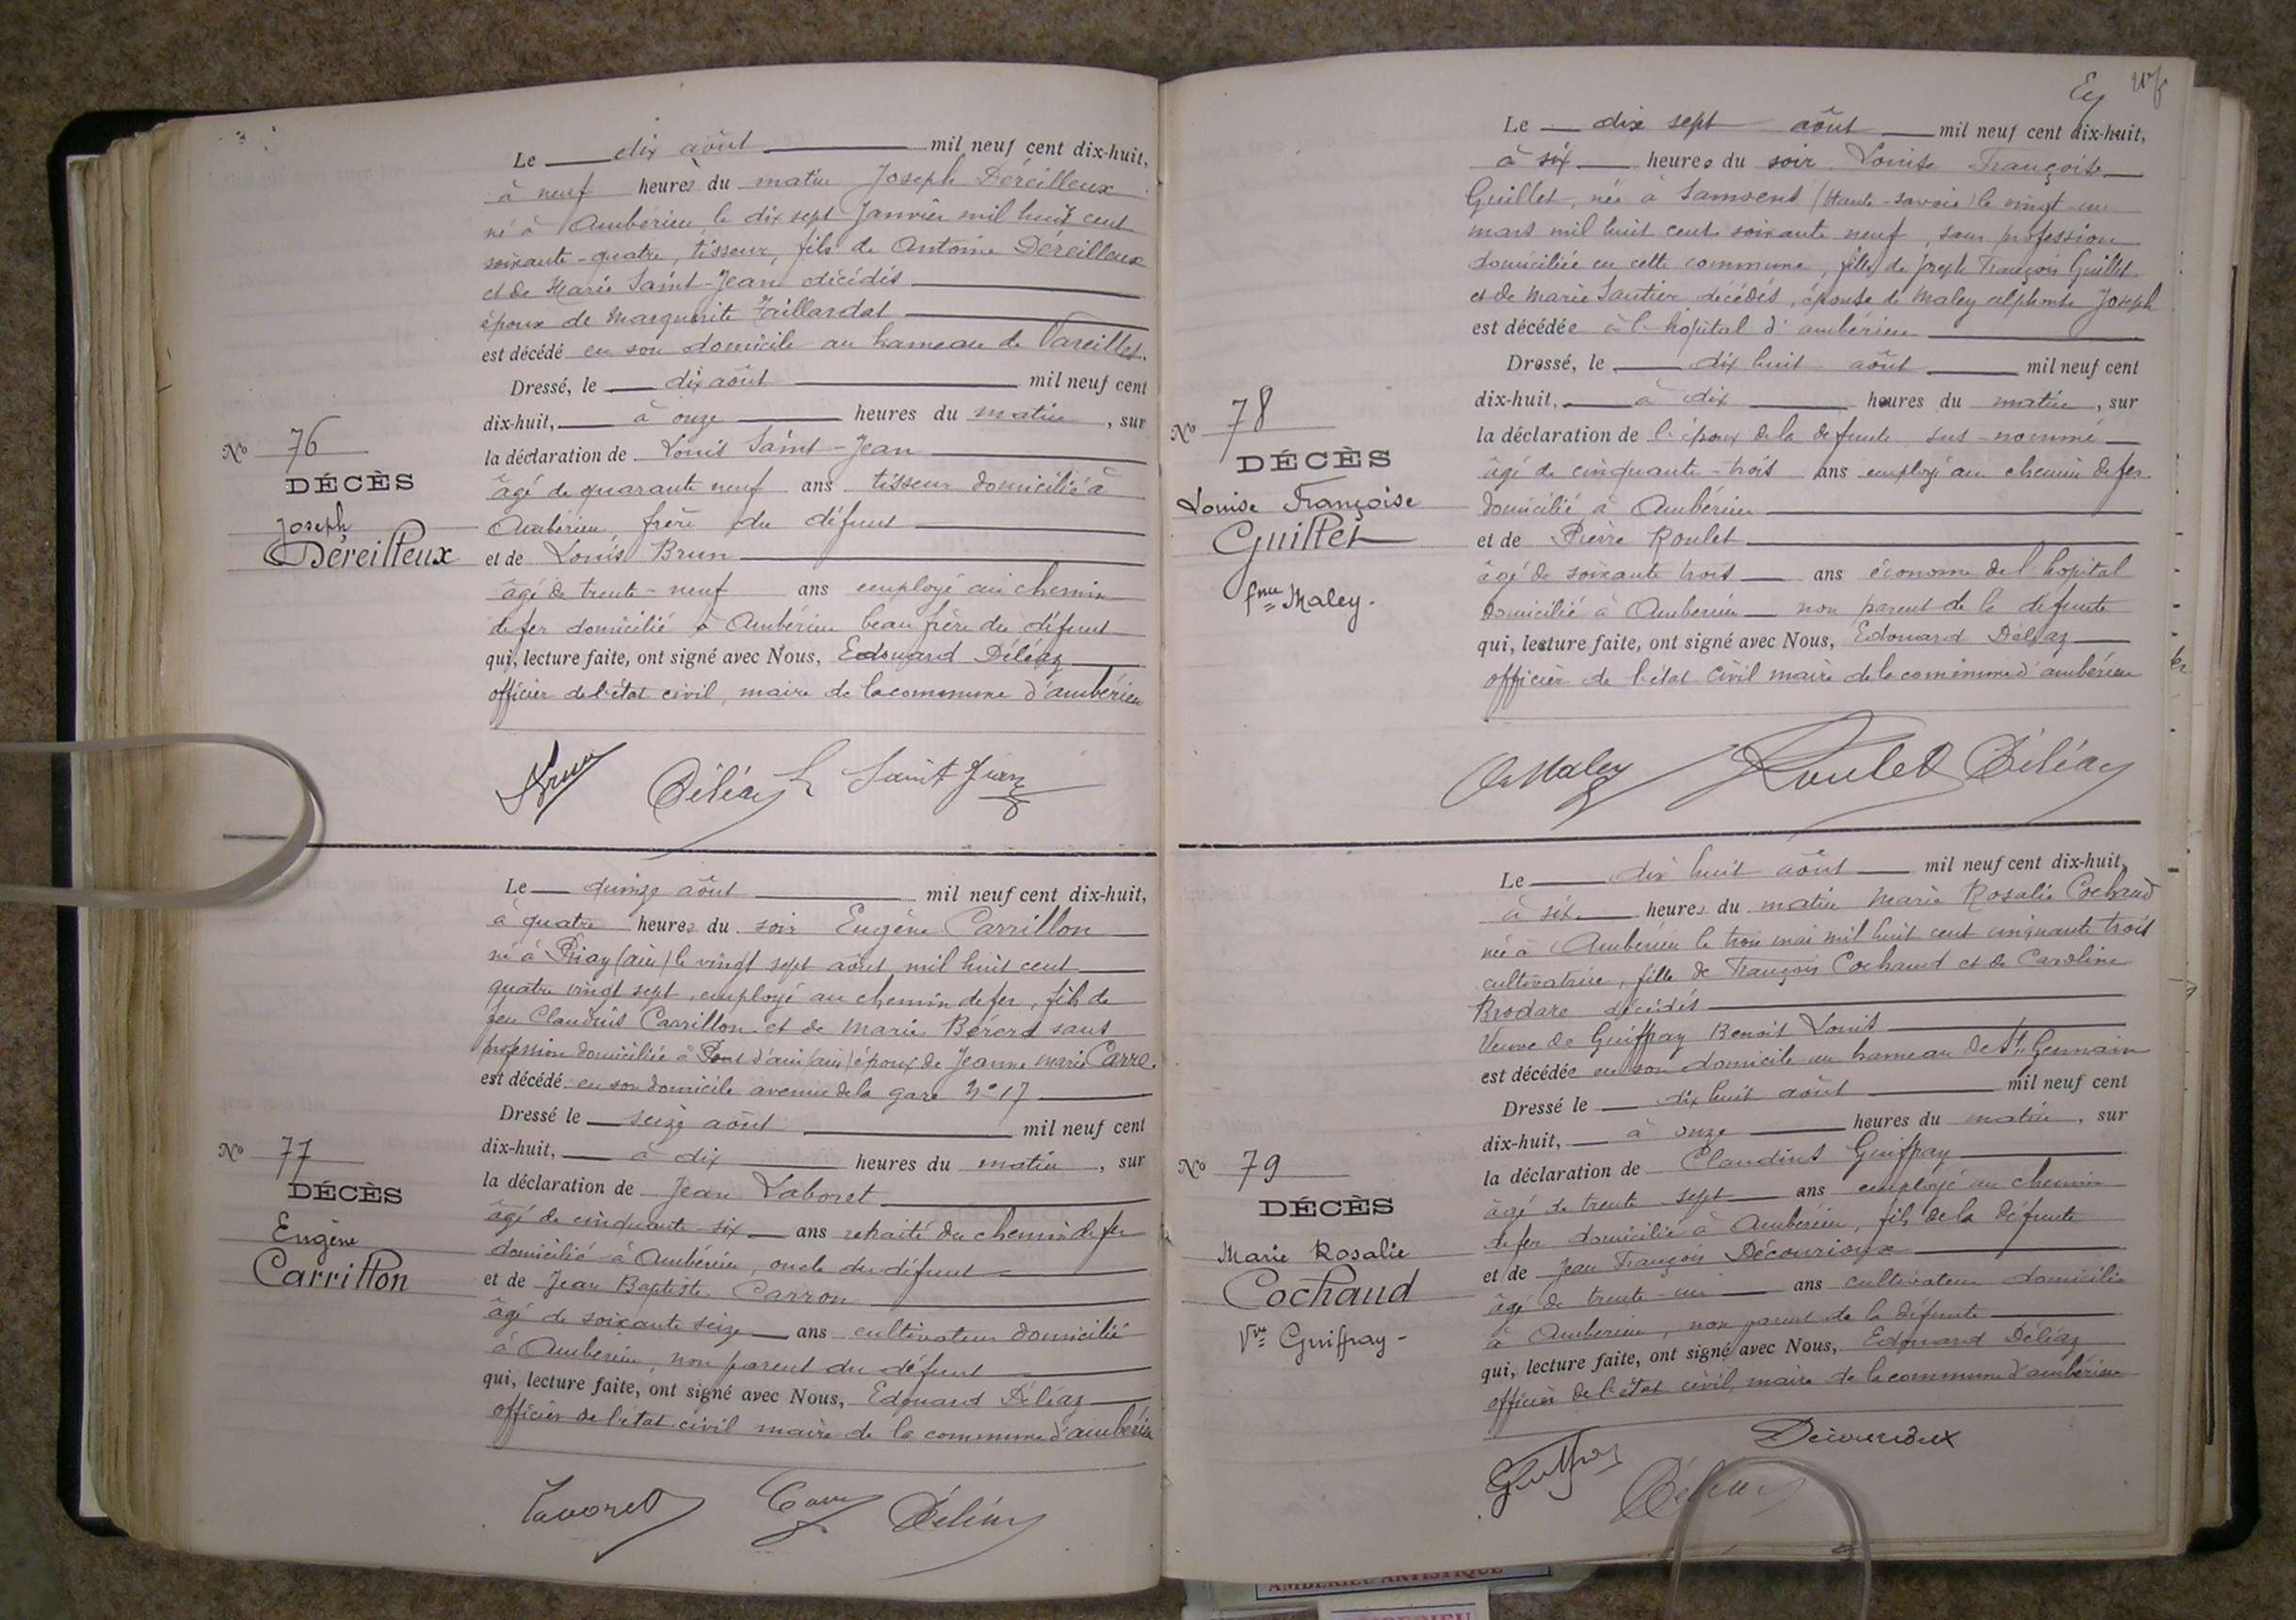 Le dix août mil neuf cent dix-huit,
à neuf heures du matin Joseph Déreilleux
né à Ambérieu le dix sept Janvier mil huit cent
soixante-quatre, tisseur, fils de Antoine Déreilleux
et de Marie Saint-Jean décédés
époux de Marguerite Taillardat
est décédé en son domicile au hameau de Vareilles.
Dressé, le dix août mil neuf cent
dix-huit, à onze heures du matin, sur
la déclaration de Louis Saint-Jean
âgé de quarante neuf ans tisseur domicilié à
Ambérieu, frère du défunt
et de Louis Brun
âgé de trente-neuf ans employé au chemin
de fer domicilié à Ambérieu beau frère du défunt
qui, lecture faite, ont signé avec Nous, Edouard Déléaz
officier de l'état civil, maire de la commune d'ambérieu
No 76
DÉCÈS
Joseph
Déreilleux
Brun Déléaz L Saint Jean
Le quinze août mil neuf cent dix-huit,
à quatre heures du soir Eugène Carrillon
né à Priay (ain) le vingt sept août mil huit cent
quatre vingt sept, employé au chemin de fer, fils de
feu Claudius Carrillon et de Marie Bérerd sans
profession domiciliée à Pont d'ain (ain) époux de Jeanne Marie Carre.
est décédé en son domicile avenue de la gare No 17
Dressé le seize août mil neuf cent
dix-huit, à dix heures du matin, sur
la déclaration de Jean Laboret
âgé de cinquante-six ans retraité du chemin de fer
domicilié à Ambérieu, oncle du défunt
et de Jean Baptiste Carron
âgé de soixante seize ans cultivateur domicilié
à Ambérieu, non parent du défunt
qui, lecture faite, ont signé avec Nous, Edouard Déléaz
officier de l'état civil maire de la commune d'ambérieu
No 77
DÉCÈS
Eugène
Carrillon
Déléaz
Le dix sept août mil neuf cent dix-huit,
à six heures du soir Louise Françoise
Guillet, née à Samoens (Haute-Savoie) le vingt-un
mars mil huit cent soixante neuf, sans profession
domiciliée en cette commune, fille de Joseph François Guillet
et de Marie Sautier décédés, épouse de Maley alphonse Joseph
est décédée à l'hôpital d'ambérieu
Dressé, le dix huit août mil neuf cent
dix-huit, à dix heures du matin, sur
la déclaration de l'époux de la défunte, sus-nommé
âgé de cinquante-trois ans employé au chemin de fer
domicilié à Ambérieu
et de Pierre Roulet
âgé de soixante trois ans économe de l'hopital
domicilié à Ambérieu non parent de la défunte
qui, lecture faite, ont signé avec Nous, Edouard Déléaz
officier de l'état civil maire de la commune d'ambérieu
No 78
DÉCÈS
Louise Françoise
Guillet
fme Maley.
Maley Roulet Déléaz
Le dix huit août mil neuf cent dix-huit,
à six heures du matin Marie Rosalie Cochaud
née à Ambérieu le trois mai mil huit cent cinquante trois
cultivatrice, fille de François Cochaud et de Caroline
Brodare décédés
Veuve de Guiffray Benoit Louis
est décédée en son domicile au hameau de St Germain
Dressé le dix huit août mil neuf cent
dix-huit, à onze heures du matin, sur
la déclaration de Claudius Guiffray
âgé de trente sept ans employé au chemin
de fer domicilié à Ambérieu, fils de la défunte
et de Jean François Décourioux
âgé de trente-un ans cultivateur domicilié
à Ambérieu, non parent de la défunte
qui, lecture faite, ont signé avec Nous, Edouard Déléaz
officier de l'état civil, maire de la commune d'ambérieu
No 79
DÉCÈS
Marie Rosalie
Cochaud
Vve Guiffray
Guiffray Déléaz
AMBERIEU ARTISTIQUE